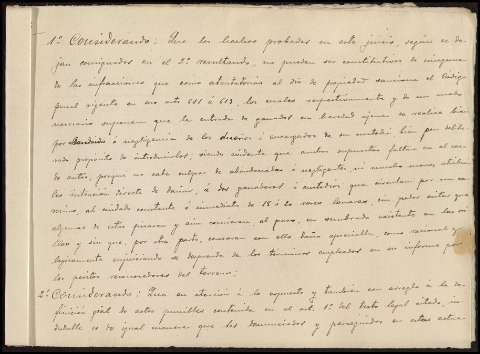 1º Considerando: Que los hechos probados en este juicio, según se de-
jan consignados en el 2º resultando, no pueden ser constitutivos de ninguna
de las infracciones que como atentatorias al de propiedad sanciona el Código
penal vigente en sus arts 611 á 613, los cuales respectivamente y de un modo
necesario suponen que la entrada de ganados en heredad ajena se realice bien
por abandono ó negligencia de los dueños ó encargados de su custodia bien por delibe-
rado propósito de introducirlos, siendo evidente que ambos supuestos faltan en el caso
de autos, porque no cabe culpar de abandonados ó negligentes, ni mucho menos atribuir-
les intención directa de dañar, á dos ganaderos ó custodios que cuentan por un ca-
mino, al cuidado constante é inmediato de 18 á 20 reses lanares, sin poder evitar que
algunas de estas pinaran y sin comieran, al paso, un sembrado existente en las ori-
llas y sin que, por otra parte, causaran con ello daño apreciable, como racional y
lógicamente enjuiciando se desprende de los términos empleados en su informe por
los peritos reconocedores del terreno;
2º Considerando: Que en atención á lo expuesto y también con arreglo á la de-
finición gral de actos punibles contenida en el art. 1º del texto legal citado, in-
dudable es de igual manera que los denunciados y perseguidos en estas actua-